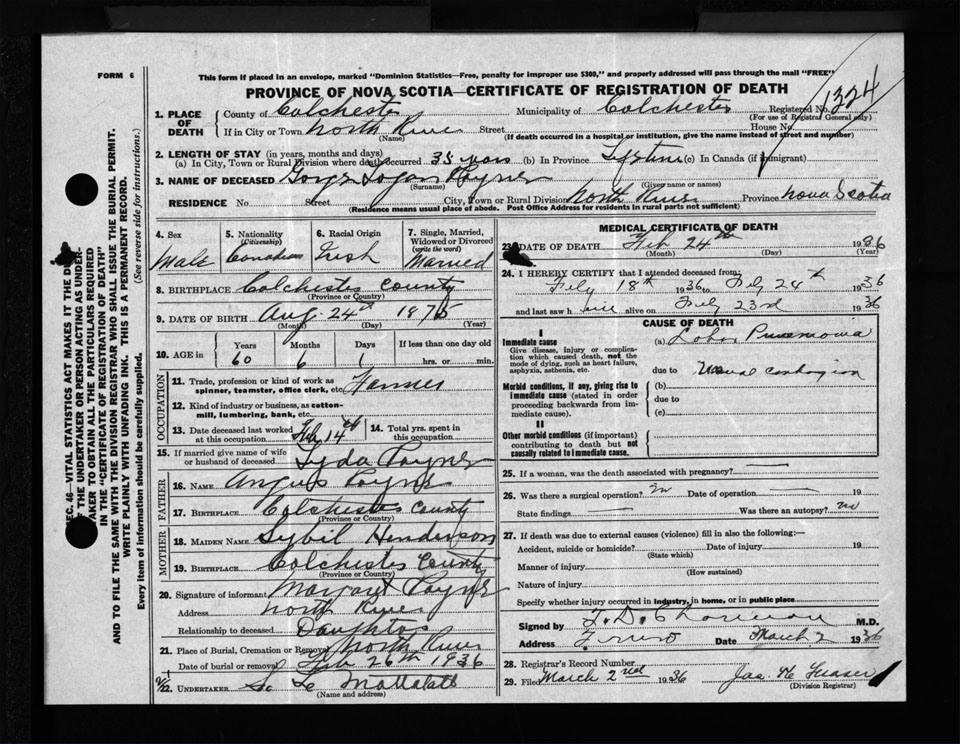 FORM 6
This form if placed in an envelope, marked "Dominion Statistics—Free, penalty for improper use $300," and properly addressed will pass through the mail "FREE"
PROVINCE OF NOVA SCOTIA—CERTIFICATE OF REGISTRATION OF DEATH
1. PLACE OF DEATH County of Colchester Municipality of Colchester Registered No. 1324
(For use of Registrar General only)
If in City or Town North River Street House No.
(Name) (If death occurred in a hospital or institution, give the name instead of street and number)
2. LENGTH OF STAY (in years, months and days)
(a) In City, Town or Rural Division where death occurred 35 years (b) In Province Lifetime (c) In Canada (if immigrant)
3. NAME OF DECEASED Logan
(Surname) (Given name or names)
RESIDENCE No. Street City, Town or Rural Division North River Province Nova Scotia
(Residence means usual place of abode. Post Office Address for residents in rural parts not sufficient)
4. Sex Male
5. Nationality (Citizenship) Canadian
6. Racial Origin Irish
7. Single, Married, Widowed or Divorced (write the word) Married
8. BIRTHPLACE Colchester County
(Province or Country)
9. DATE OF BIRTH Aug. 24th 1875
(Month) (Day) (Year)
10. AGE in Years Months Days If less than one day old
60 6 1 hrs. or min.
OCCUPATION
11. Trade, profession or kind of work as spinner, teamster, office clerk, etc. Farmer
12. Kind of industry or business, as cotton-mill, lumbering, bank, etc.
13. Date deceased last worked at this occupation Feby 14th
14. Total yrs. spent in this occupation
15. If married give name of wife or husband of deceased Lyda
FATHER
16. NAME Angus
17. BIRTHPLACE Colchester County
(Province or Country)
MOTHER
18. MAIDEN NAME Sybil Henderson
19. BIRTHPLACE Colchester County
(Province or Country)
20. Signature of informant Margaret
Address North River
Relationship to deceased Daughter
21. Place of Burial, Cremation or Removal North River
Date of burial or removal Feb 26th 1936
22. UNDERTAKER
(Name and address)
MEDICAL CERTIFICATE OF DEATH
23. DATE OF DEATH Feb 24th 1936
(Month) (Day) (Year)
24. I HEREBY CERTIFY that I attended deceased from:
Feby 18th 1936 to Feby 24th 1936
and last saw h alive on Feby 23rd 1936
CAUSE OF DEATH
I
Immediate cause
Give disease, injury or complication which caused death, not the mode of dying, such as heart failure, asphyxia, asthenia, etc.
(a) Lobar Pneumonia
due to Usual contagion
Morbid conditions, if any, giving rise to immediate cause (stated in order proceeding backwards from immediate cause).
(b)
due to
(c)
II
Other morbid conditions (if important) contributing to death but not causally related to immediate cause.
25. If a woman, was the death associated with pregnancy?
26. Was there a surgical operation? no Date of operation 19
State findings Was there an autopsy? no
27. If death was due to external causes (violence) fill in also the following:—
Accident, suicide or homicide? Date of injury 19
(State which)
Manner of injury
(How sustained)
Nature of injury
Specify whether injury occurred in industry, in home, or in public place
Signed by M.D.
Address Truro Date March 2 1936
28. Registrar's Record Number
29. Filed March 2nd 1936 Jas. Fraser
(Division Registrar)
SEC. 46—VITAL STATISTICS ACT MAKES IT THE
OF THE UNDERTAKER OR PERSON ACTING AS UNDERTAKER TO OBTAIN ALL THE PARTICULARS REQUIRED
IN THE "CERTIFICATE OF REGISTRATION OF DEATH"
AND TO FILE THE SAME WITH THE DIVISION REGISTRAR WHO SHALL ISSUE THE BURIAL PERMIT.
WRITE PLAINLY WITH UNFADING INK. THIS IS A PERMANENT RECORD.
Every item of information should be carefully supplied. (See reverse side for instructions.)